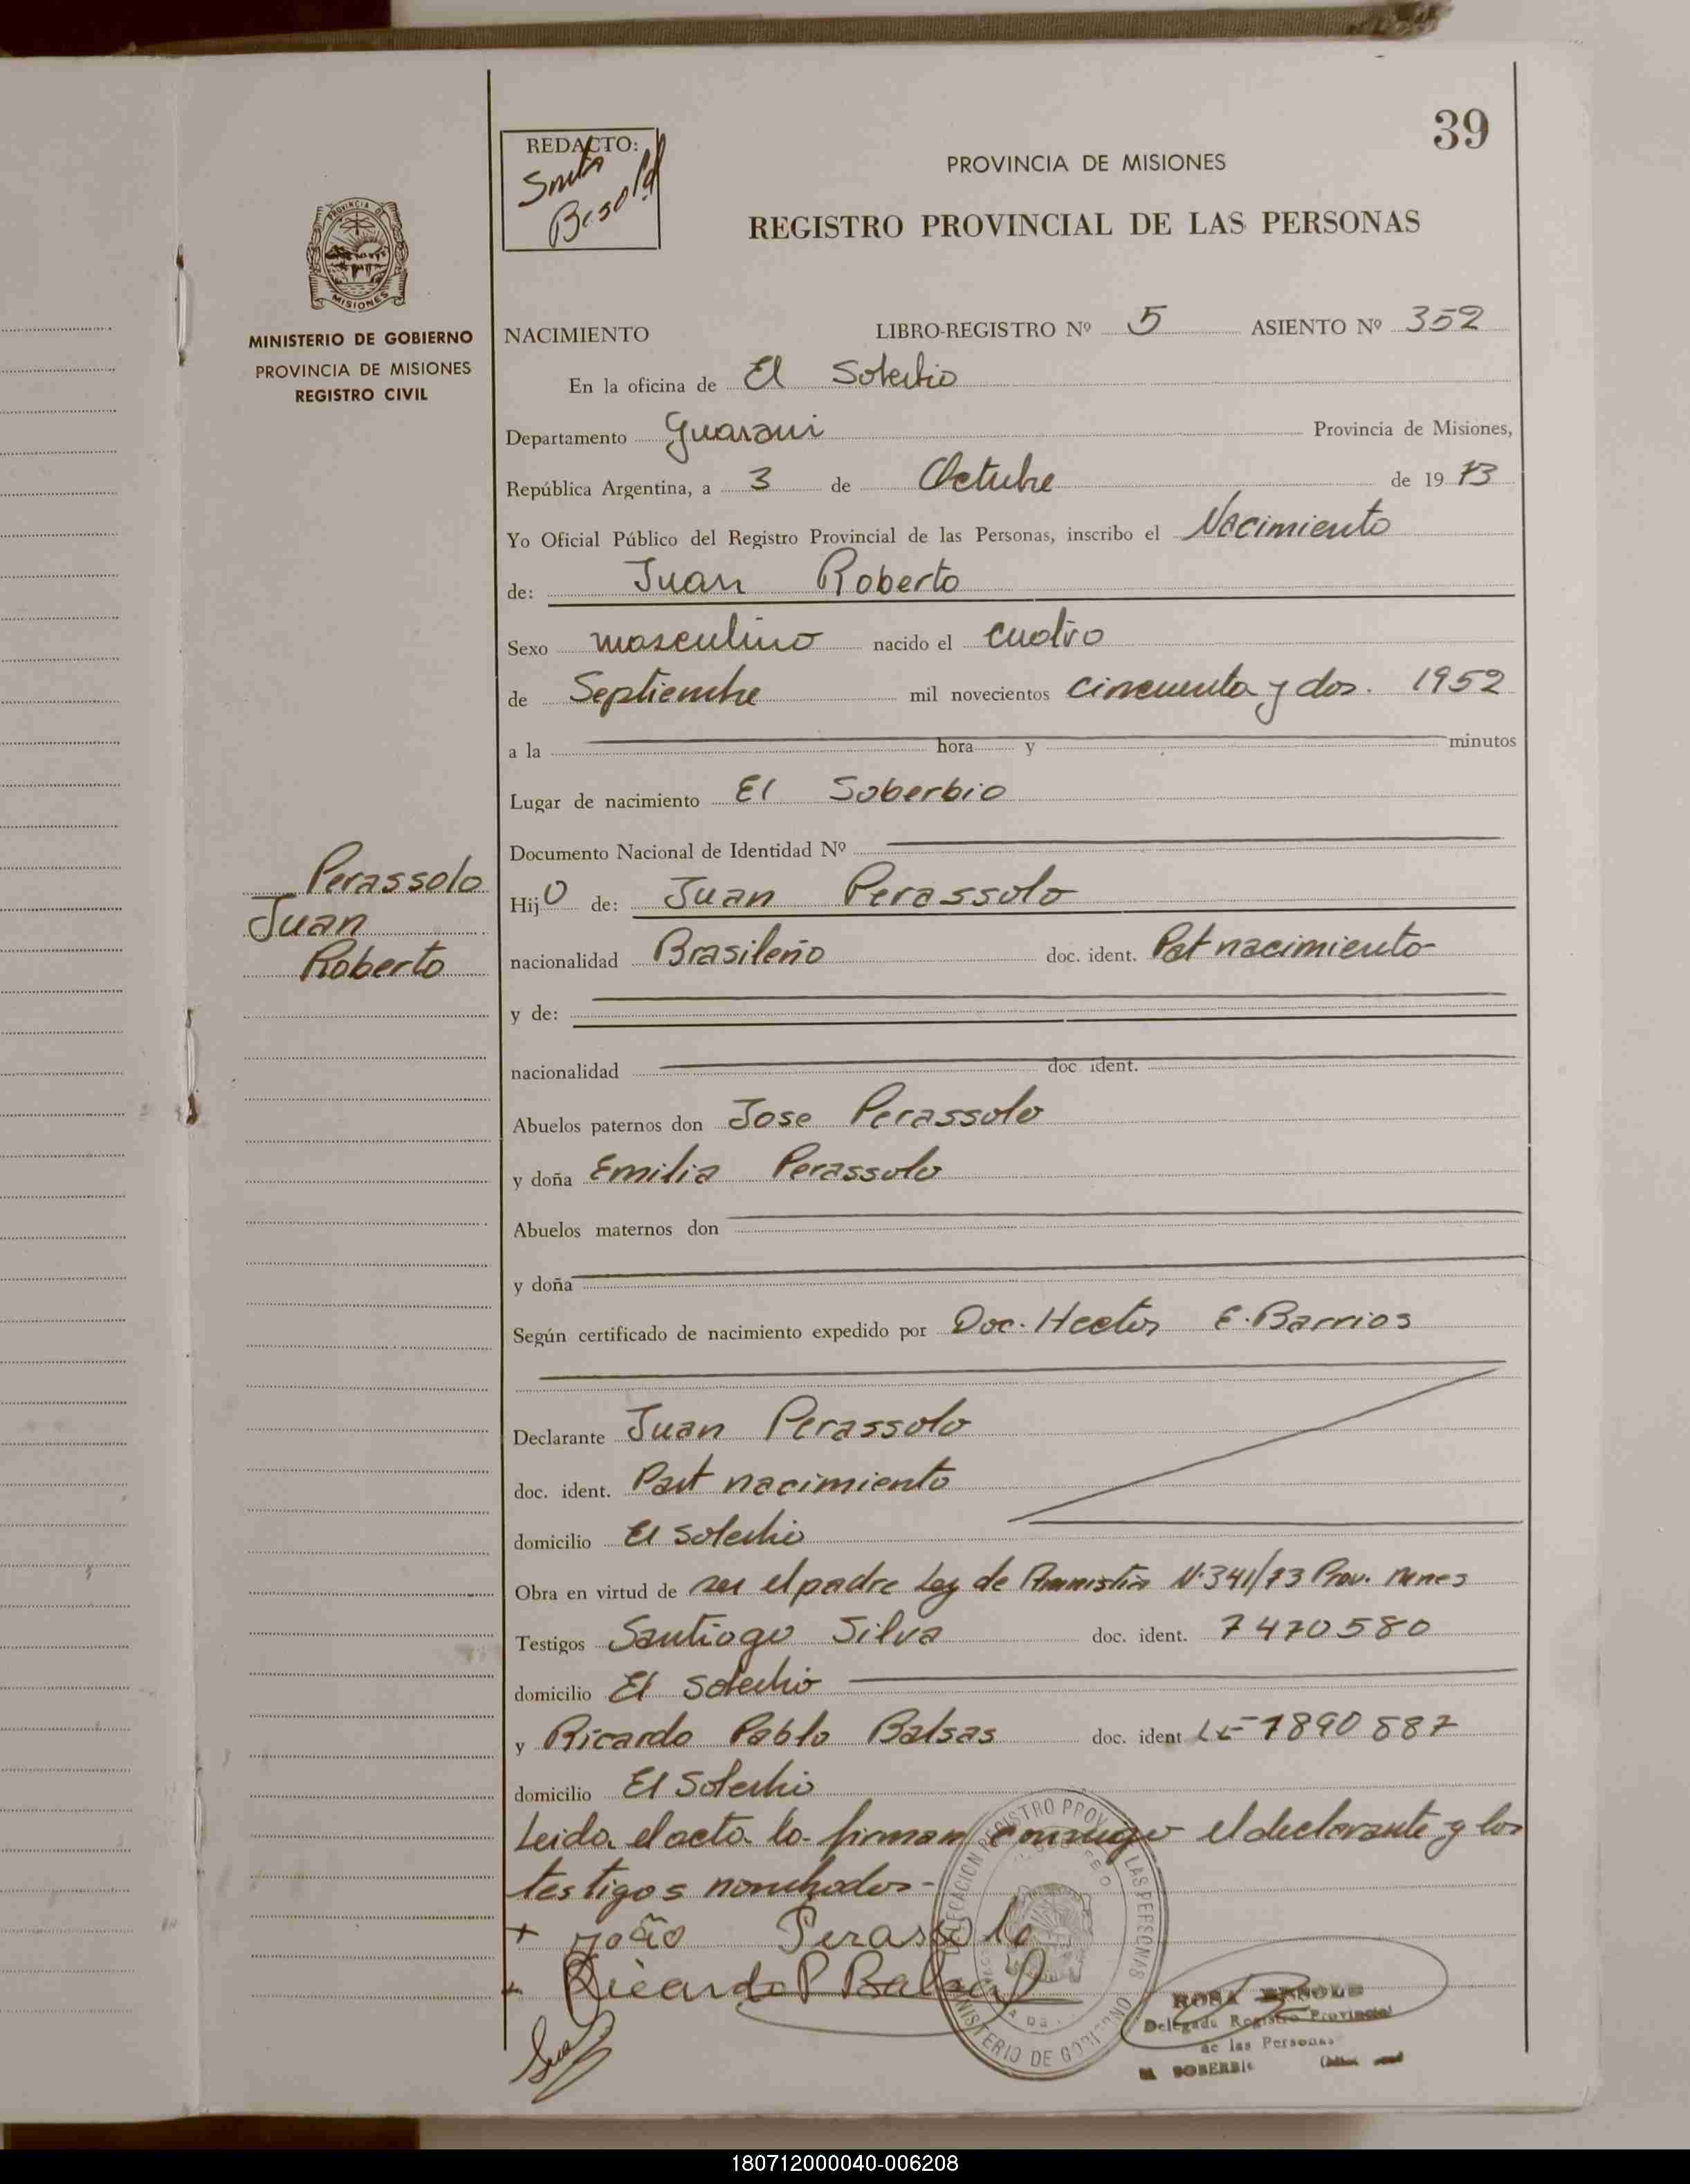 39
REDACTO:
Besold
PROVINCIA DE MISIONES
REGISTRO PROVINCIAL DE LAS PERSONAS
PROVINCIA DE
MISIONES
MINISTERIO DE GOBIERNO
PROVINCIA DE MISIONES
REGISTRO CIVIL
NACIMIENTO LIBRO-REGISTRO Nº 5 ASIENTO Nº 352
En la oficina de El Soberbio
Departamento Guarani Provincia de Misiones,
República Argentina, a 3 de Octubre de 19 73
Yo Oficial Público del Registro Provincial de las Personas, inscribo el Nacimiento
de: Juan Roberto
Sexo masculino nacido el cuatro
de Septiembre mil novecientos cincuenta y dos. 1952
a la hora y minutos
Lugar de nacimiento El Soberbio
Documento Nacional de Identidad Nº
Perassolo
Juan
Roberto
Hijo de: Juan Perassolo
nacionalidad Brasileño doc. ident. Pat nacimiento
y de:
nacionalidad doc ident.
Abuelos paternos don Jose Perassolo
y doña Emilia Perassolo
Abuelos maternos don
y doña
Según certificado de nacimiento expedido por Doc. Hector E. Barrios
Declarante Juan Perassolo
doc. ident. Part nacimiento
domicilio El Soberbio
Obra en virtud de ser el padre Ley de Amnistia N. 341/73 Prov. mnes
Testigos Santiago Silva doc. ident. 7470580
domicilio El Soberbio
y Ricardo Pablo Balsas doc. ident LE 7890887
domicilio El Soberbio
Leida el acta la firman conmigo el declarante y los
testigos nombrados-
+ João Perassolo
+ Ricardo P Balsas
DELEGACION REGISTRO PROV. DE LAS PERSONAS
MINISTERIO DE GOBIERNO
ROSA BESOLD
Delegada Registro Provincial
de las Personas
EL SOBERBIO
180712000040-006208